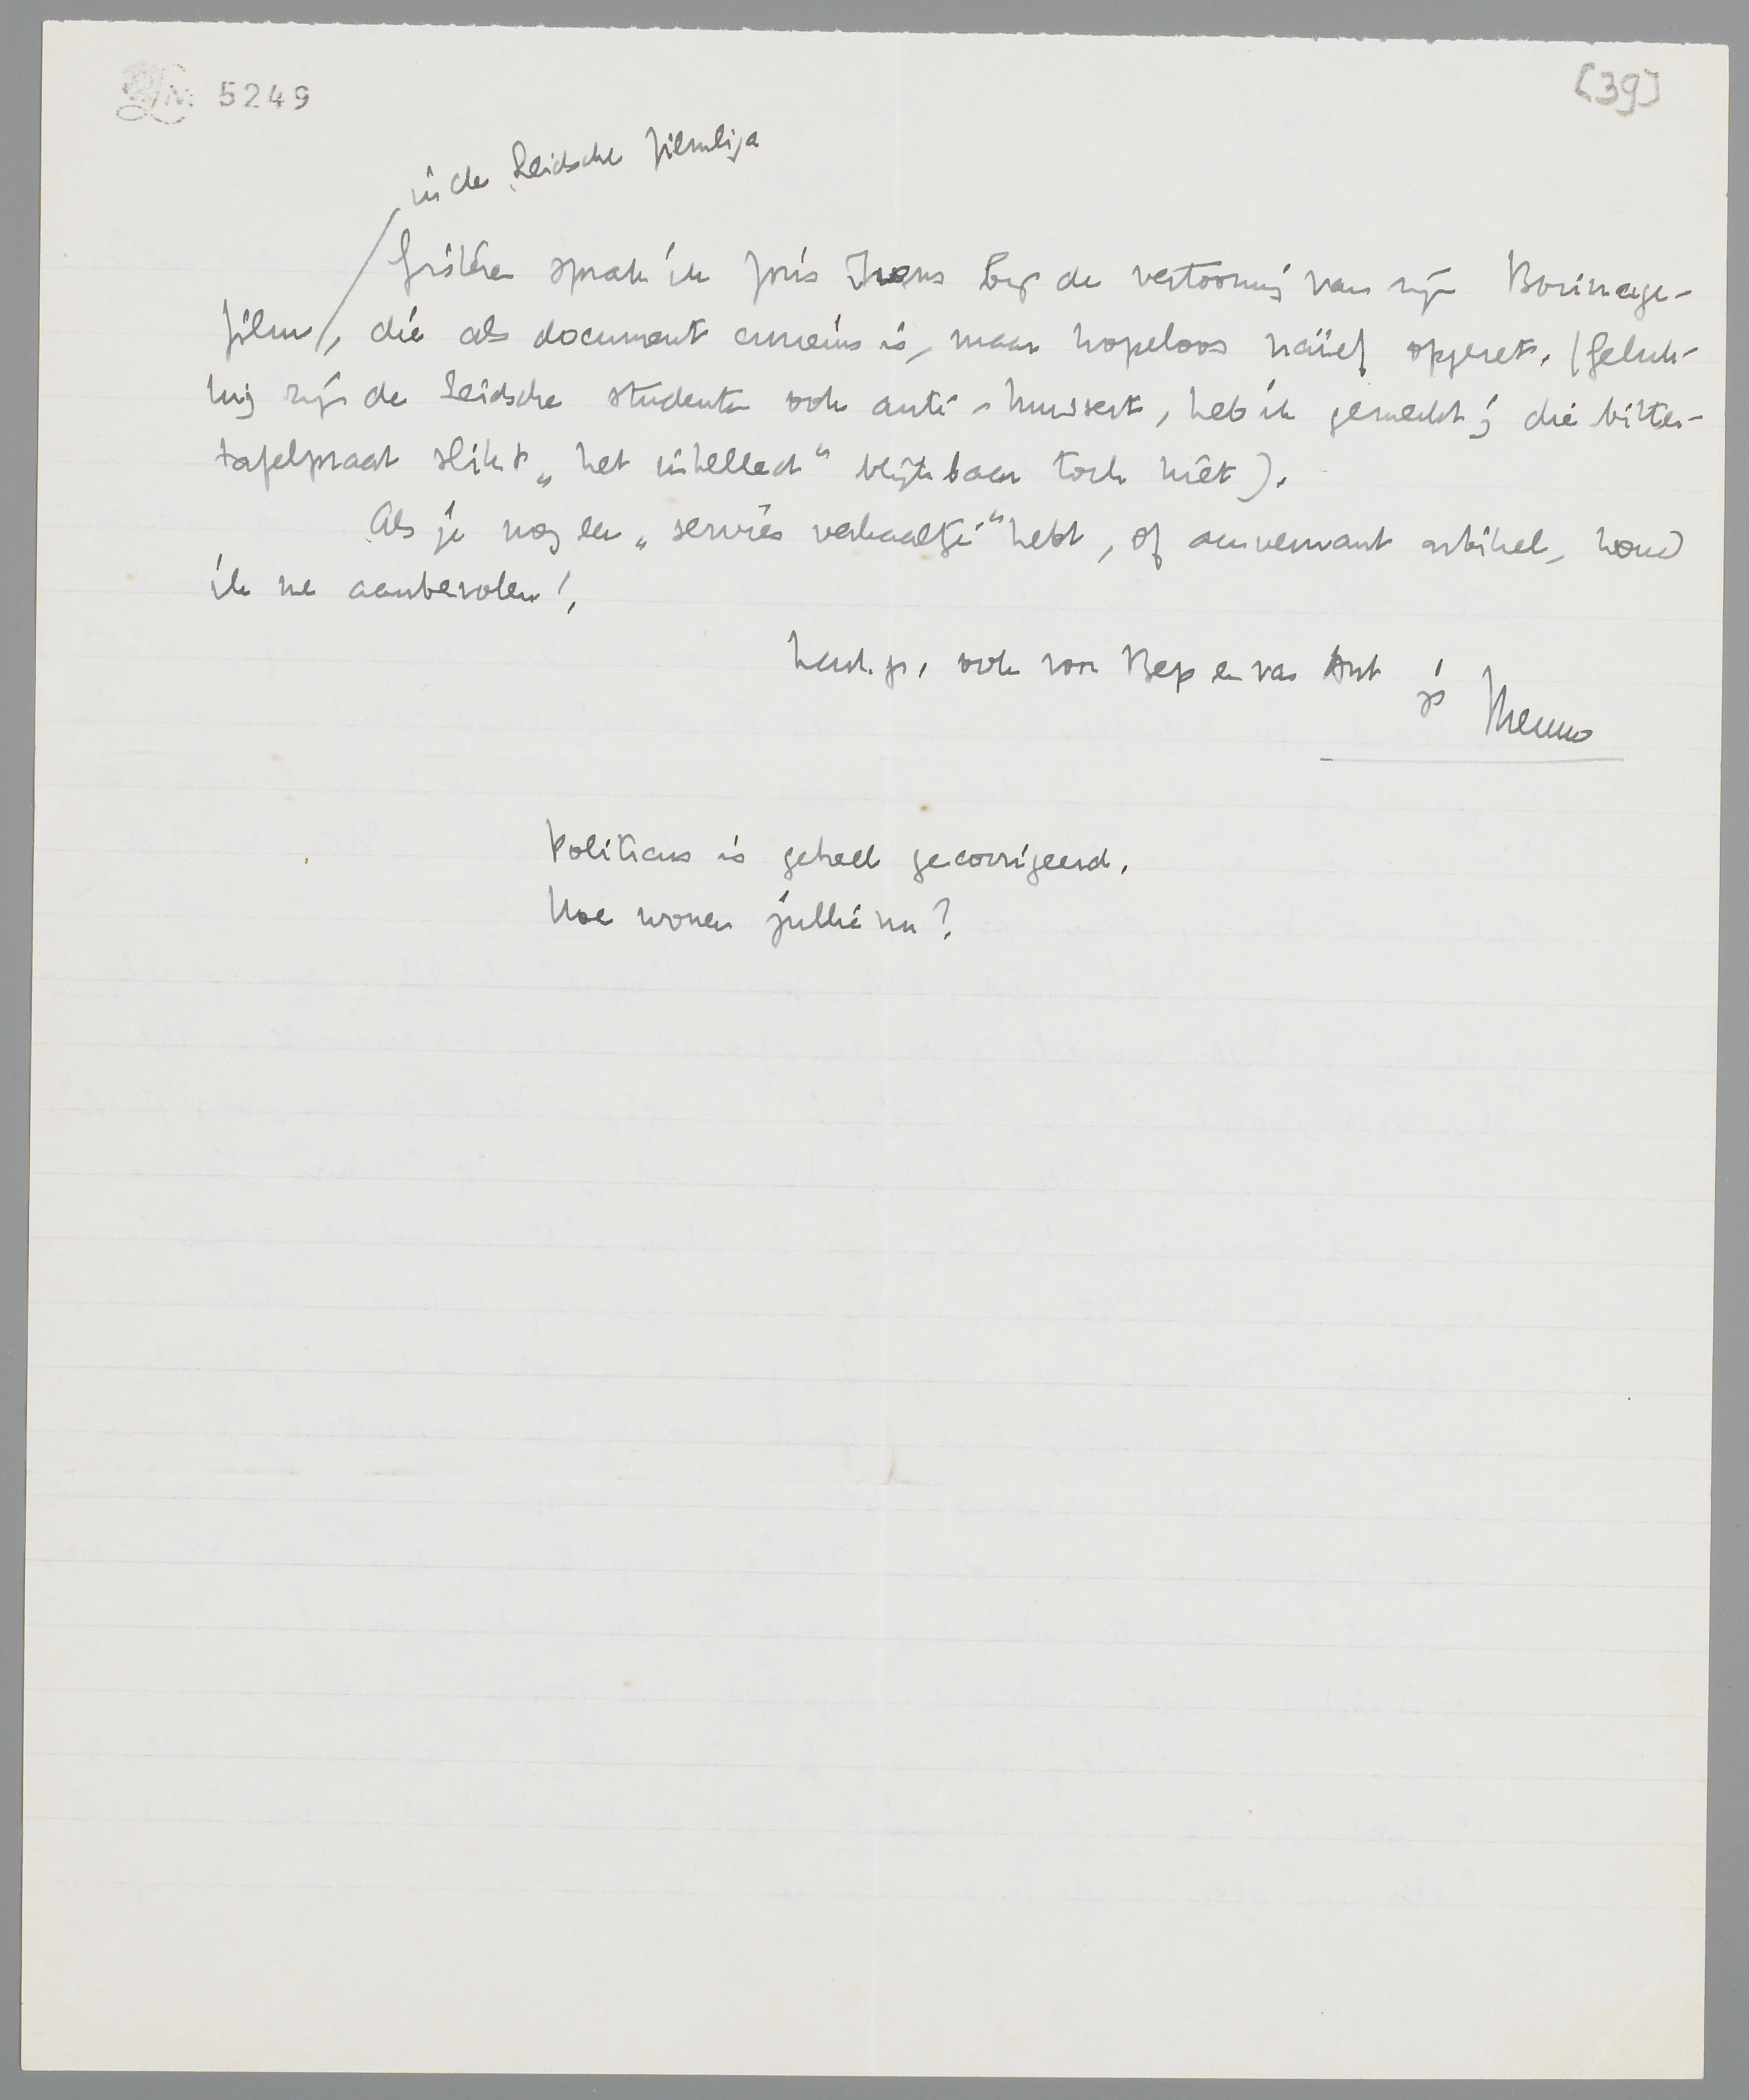 5249
[39]
in de Leidsche filmliga
Gisteren sprak ik Joris Ivens bij de vertooning van zijn Borinage-
film, die als document curieus is, maar hopeloos naïef opgezet. (Geluk-
kig zijn de Leidsche studenten ook anti-Mussert, heb ik gemerkt; die bitter-
tafelpraat slikt „het intellect" blijkbaar toch niet).
Als je nog een „servies verhaaltje" hebt, of aanverwant artikel, houd
ik me aanbevolen!
hart. gr., ook voor Bep en van Ant
je Menno
Politicus is geheel gecorrigeerd.
Hoe wonen jullie nu?